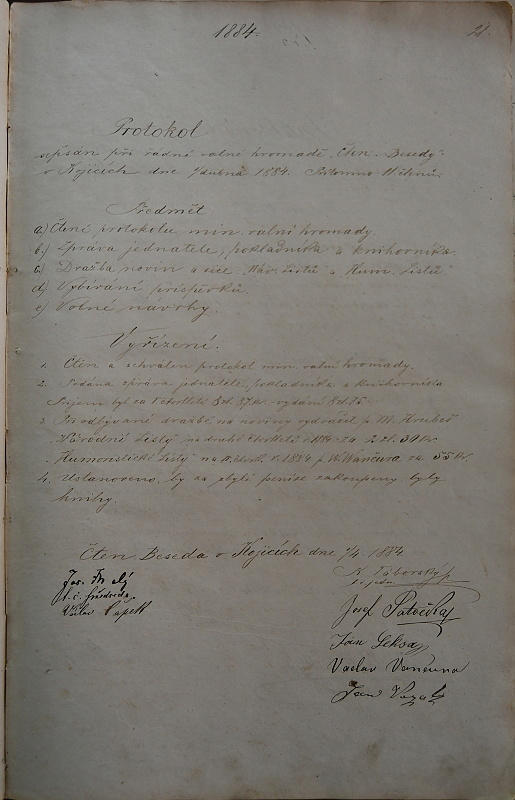 1884.
21.
Protokol
sepsán při řádné valné hromadě „Čten. Besedy“
v Kojicích dne 1/dubna 1884. Přítomno
Předmět
a) Čtení protokolu min. valní hromady.
b) Zpráva jednatele, pokladníka a knihovníka.
c) Dražba novin a sice „Nár. Listů“ a „Hum. Listů“
d) Vybírání příspěvků.
e) Volné návrhy.
Vyřízení.
1. Čten a schválen protokol min. valní hromady.
2. Podána zpráva jednatele, pokladníka a knihovníka
Příjem byl za I čtvrtletí
3. Při odbývané dražbě na noviny vydražil p. M. Hrubeš
„Národní Listy“ na druhé čtvrtletí r. 1884 za 2 zl. 30 kr.
„Humoristické Listy“ na II. čtvrt. r. 1884 p. W. Wančura za 55 kr.
4. Ustanoveno, by za zbylé peníze zakoupeny byly
knihy.
Čten Beseda v Kojicích dne 1/4 1884.
Jos.
t. č. předseda.
Václav Čapek
K. Táborský
t. č. jedn.
Josef Patočka
Jan
Vaclav Vančura
Jan